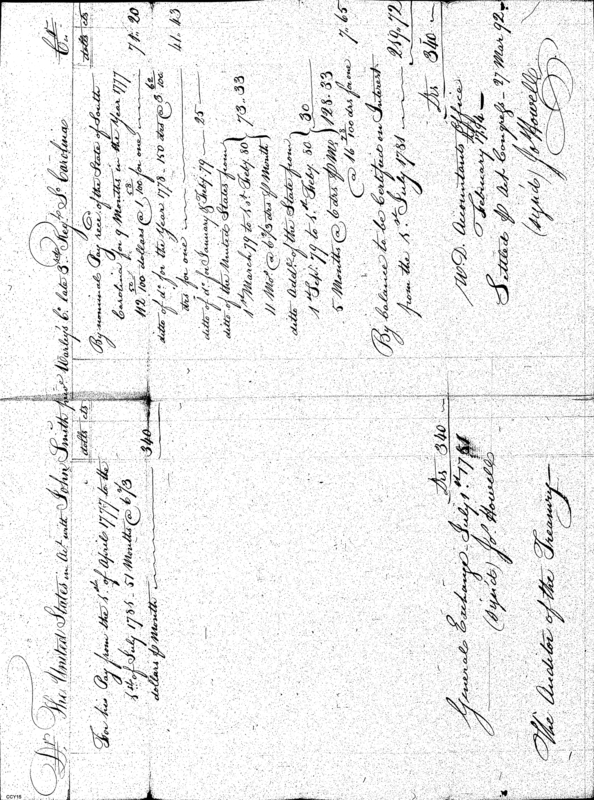 Dr. The United States in Act with John Smith priv. Warley's Co. late 3rd Regt. So. Carolina Cr.
dolls cts
For his Pay from the 1st of April 1777 to the
1st of July 1781 - 51 Months @ 6 2/3
dollars pr Month 340
Drs 340
General Exchange - July 1st 1781
(signed) Jos Howell
The Auditor of the Treasury
dolls cts
By nominal Pay recd. of the State of South
Carolina for 9 Months in the Year 1777
112 50/100 dollars @ /100 for one 74. 20
ditto of do. for the Year 1778. 150 drs @ 3 62/100
drs for one 41. 43
ditto of do. for January & Feby. 79 25
ditto of the United States from
1st March 79 to 1st Feby. 80 } 73. 33
11 Mos. @ 6 2/3 drs pr Month
ditto Addl. of the State from
1st Sept. 79 to 1st Feby. 80 } 30
5 Months @ 6 drs pr Mo. } 128. 33
@ 16 78/100 drs for one 7. 65
By balance to be Certified on Interest
from the 1st July 1781 259. 72
Drs 340
W. D. Accountants Office
February 1794
Settled pr Act Congress - 27 Mar 92
(signed) Jos Howell
CCY18